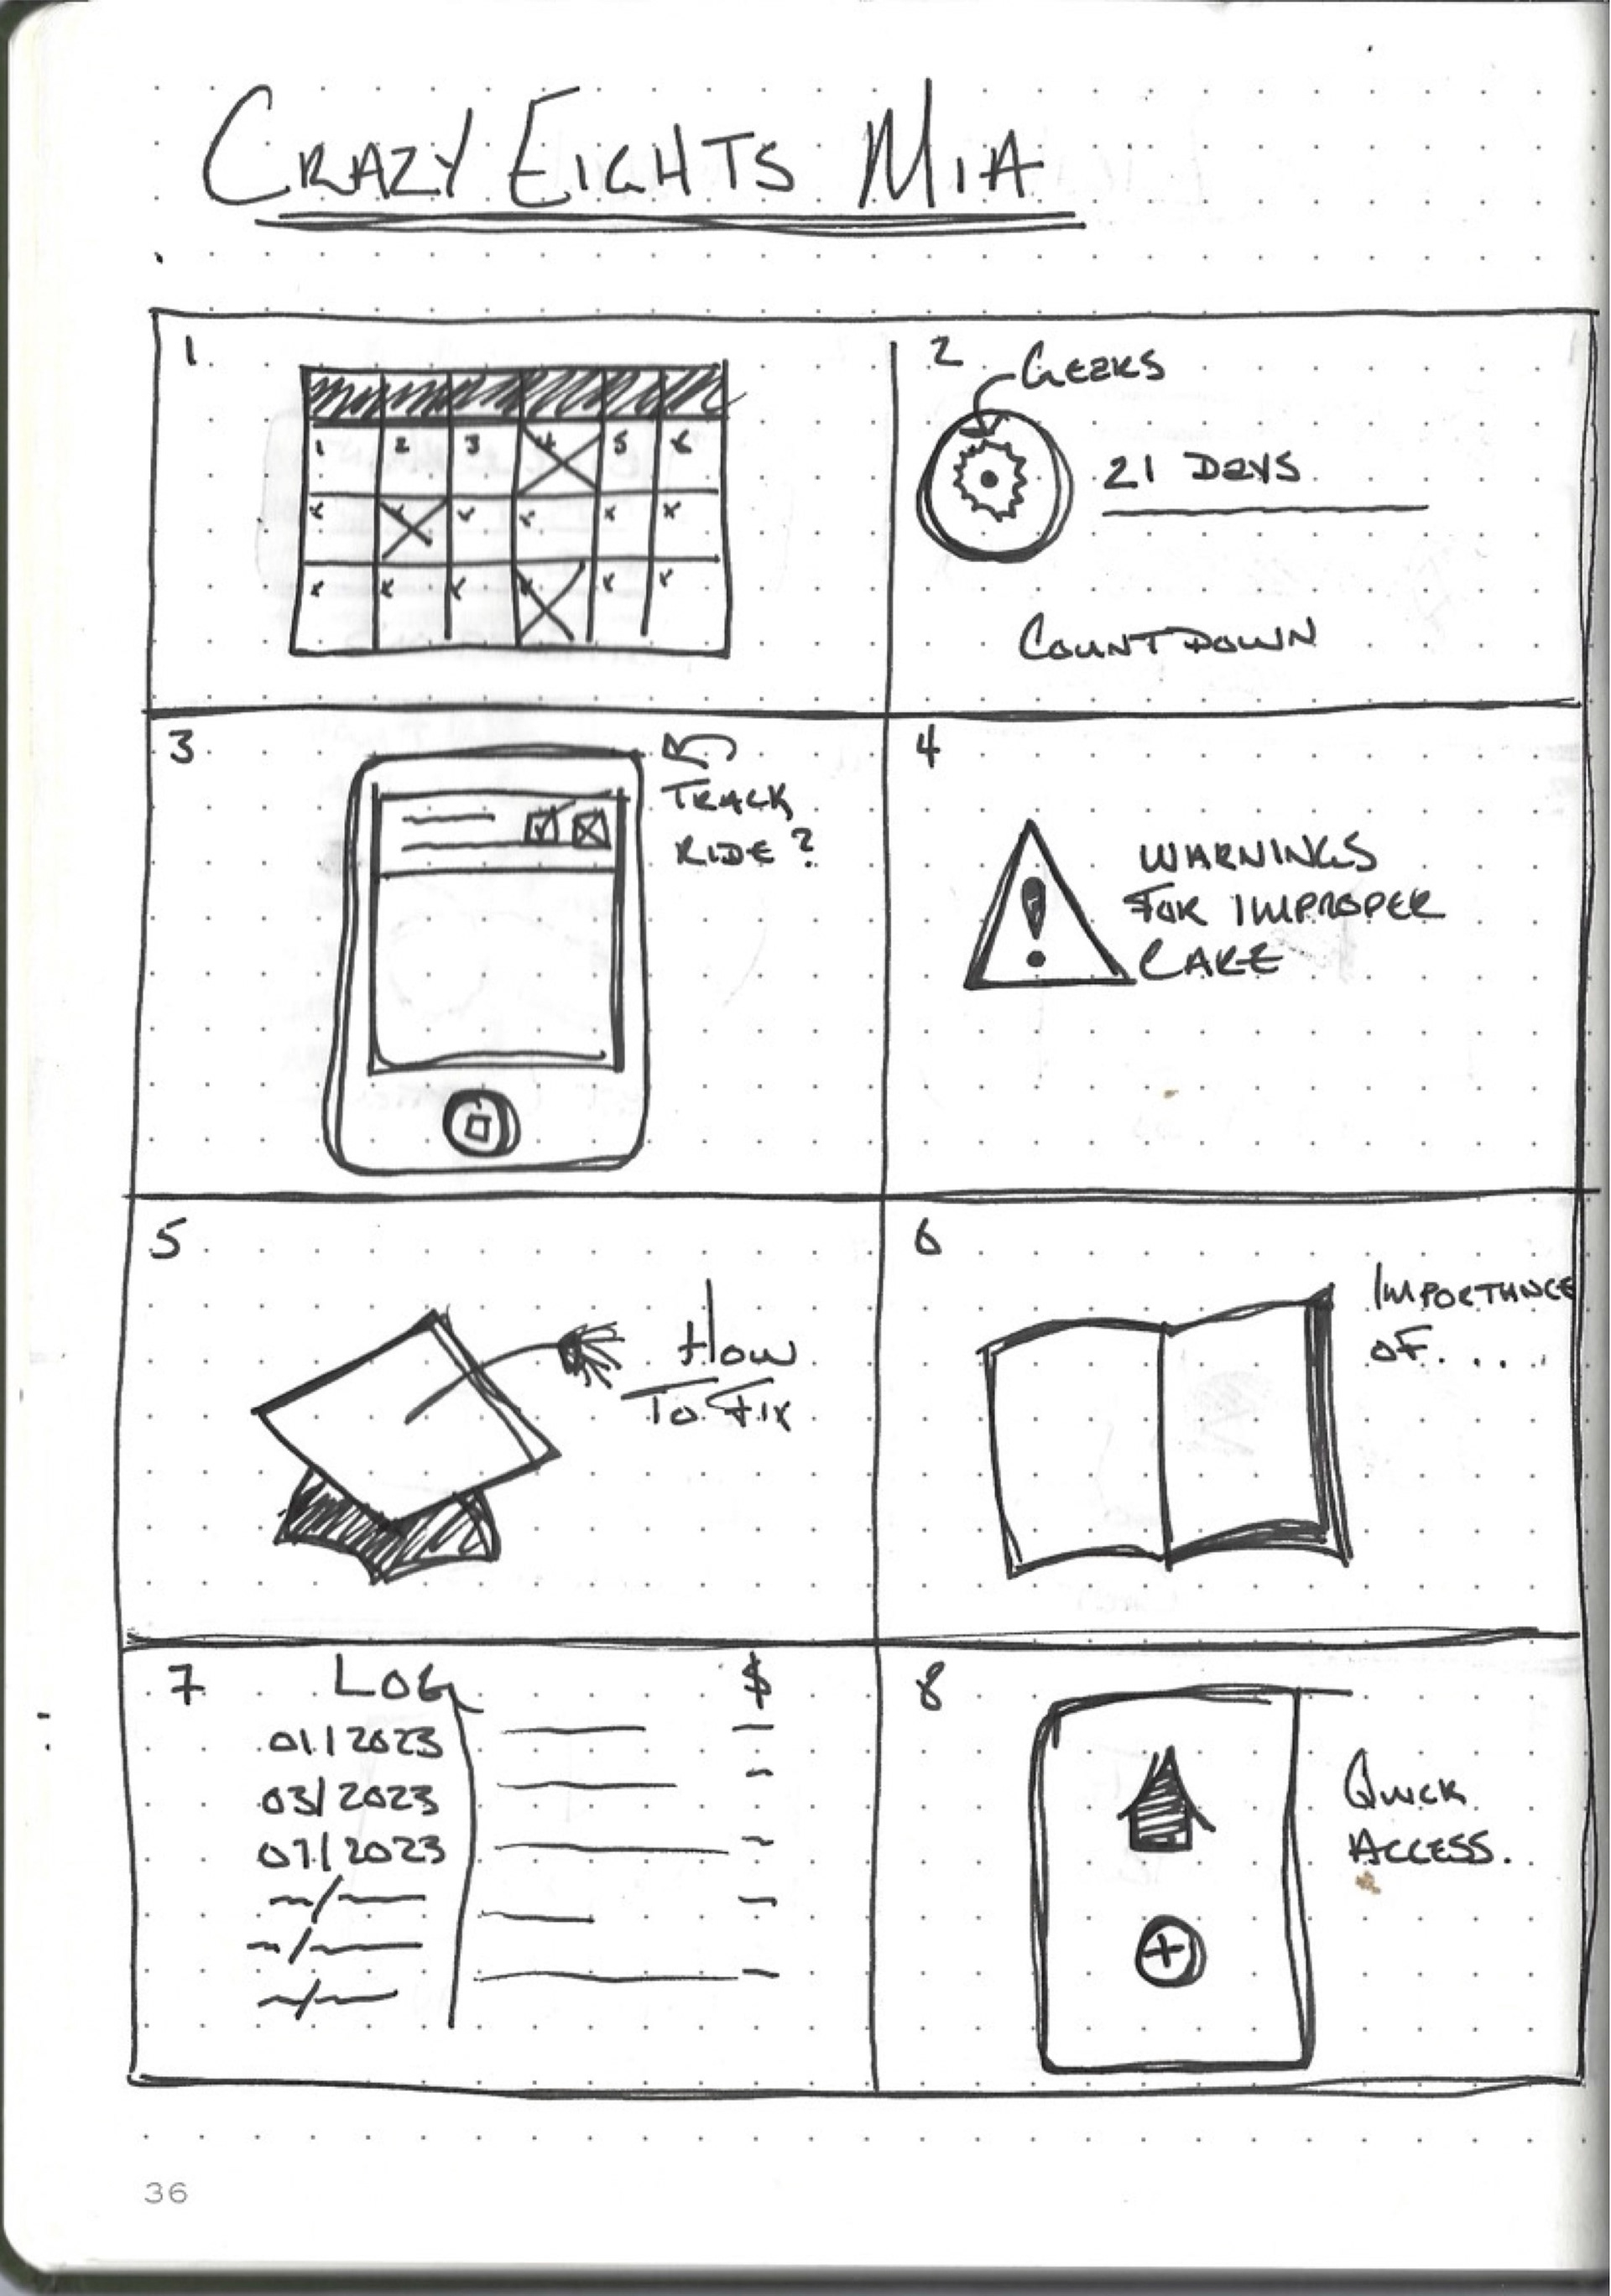 CRAZY EIGHTS MIA
1
1 2 3 4 5 6
x x x x x
x x x x x
2
GEERS
21 DAYS
COUNTDOWN
3
TRACK
RIDE?
4
!
WARNINGS
FOR IMPROPER
CARE
5
HOW
TO FIX
6
IMPORTANCE
OF....
7
LOG $
01/2023
03/2023
07/2023
8
QUICK
ACCESS.
36